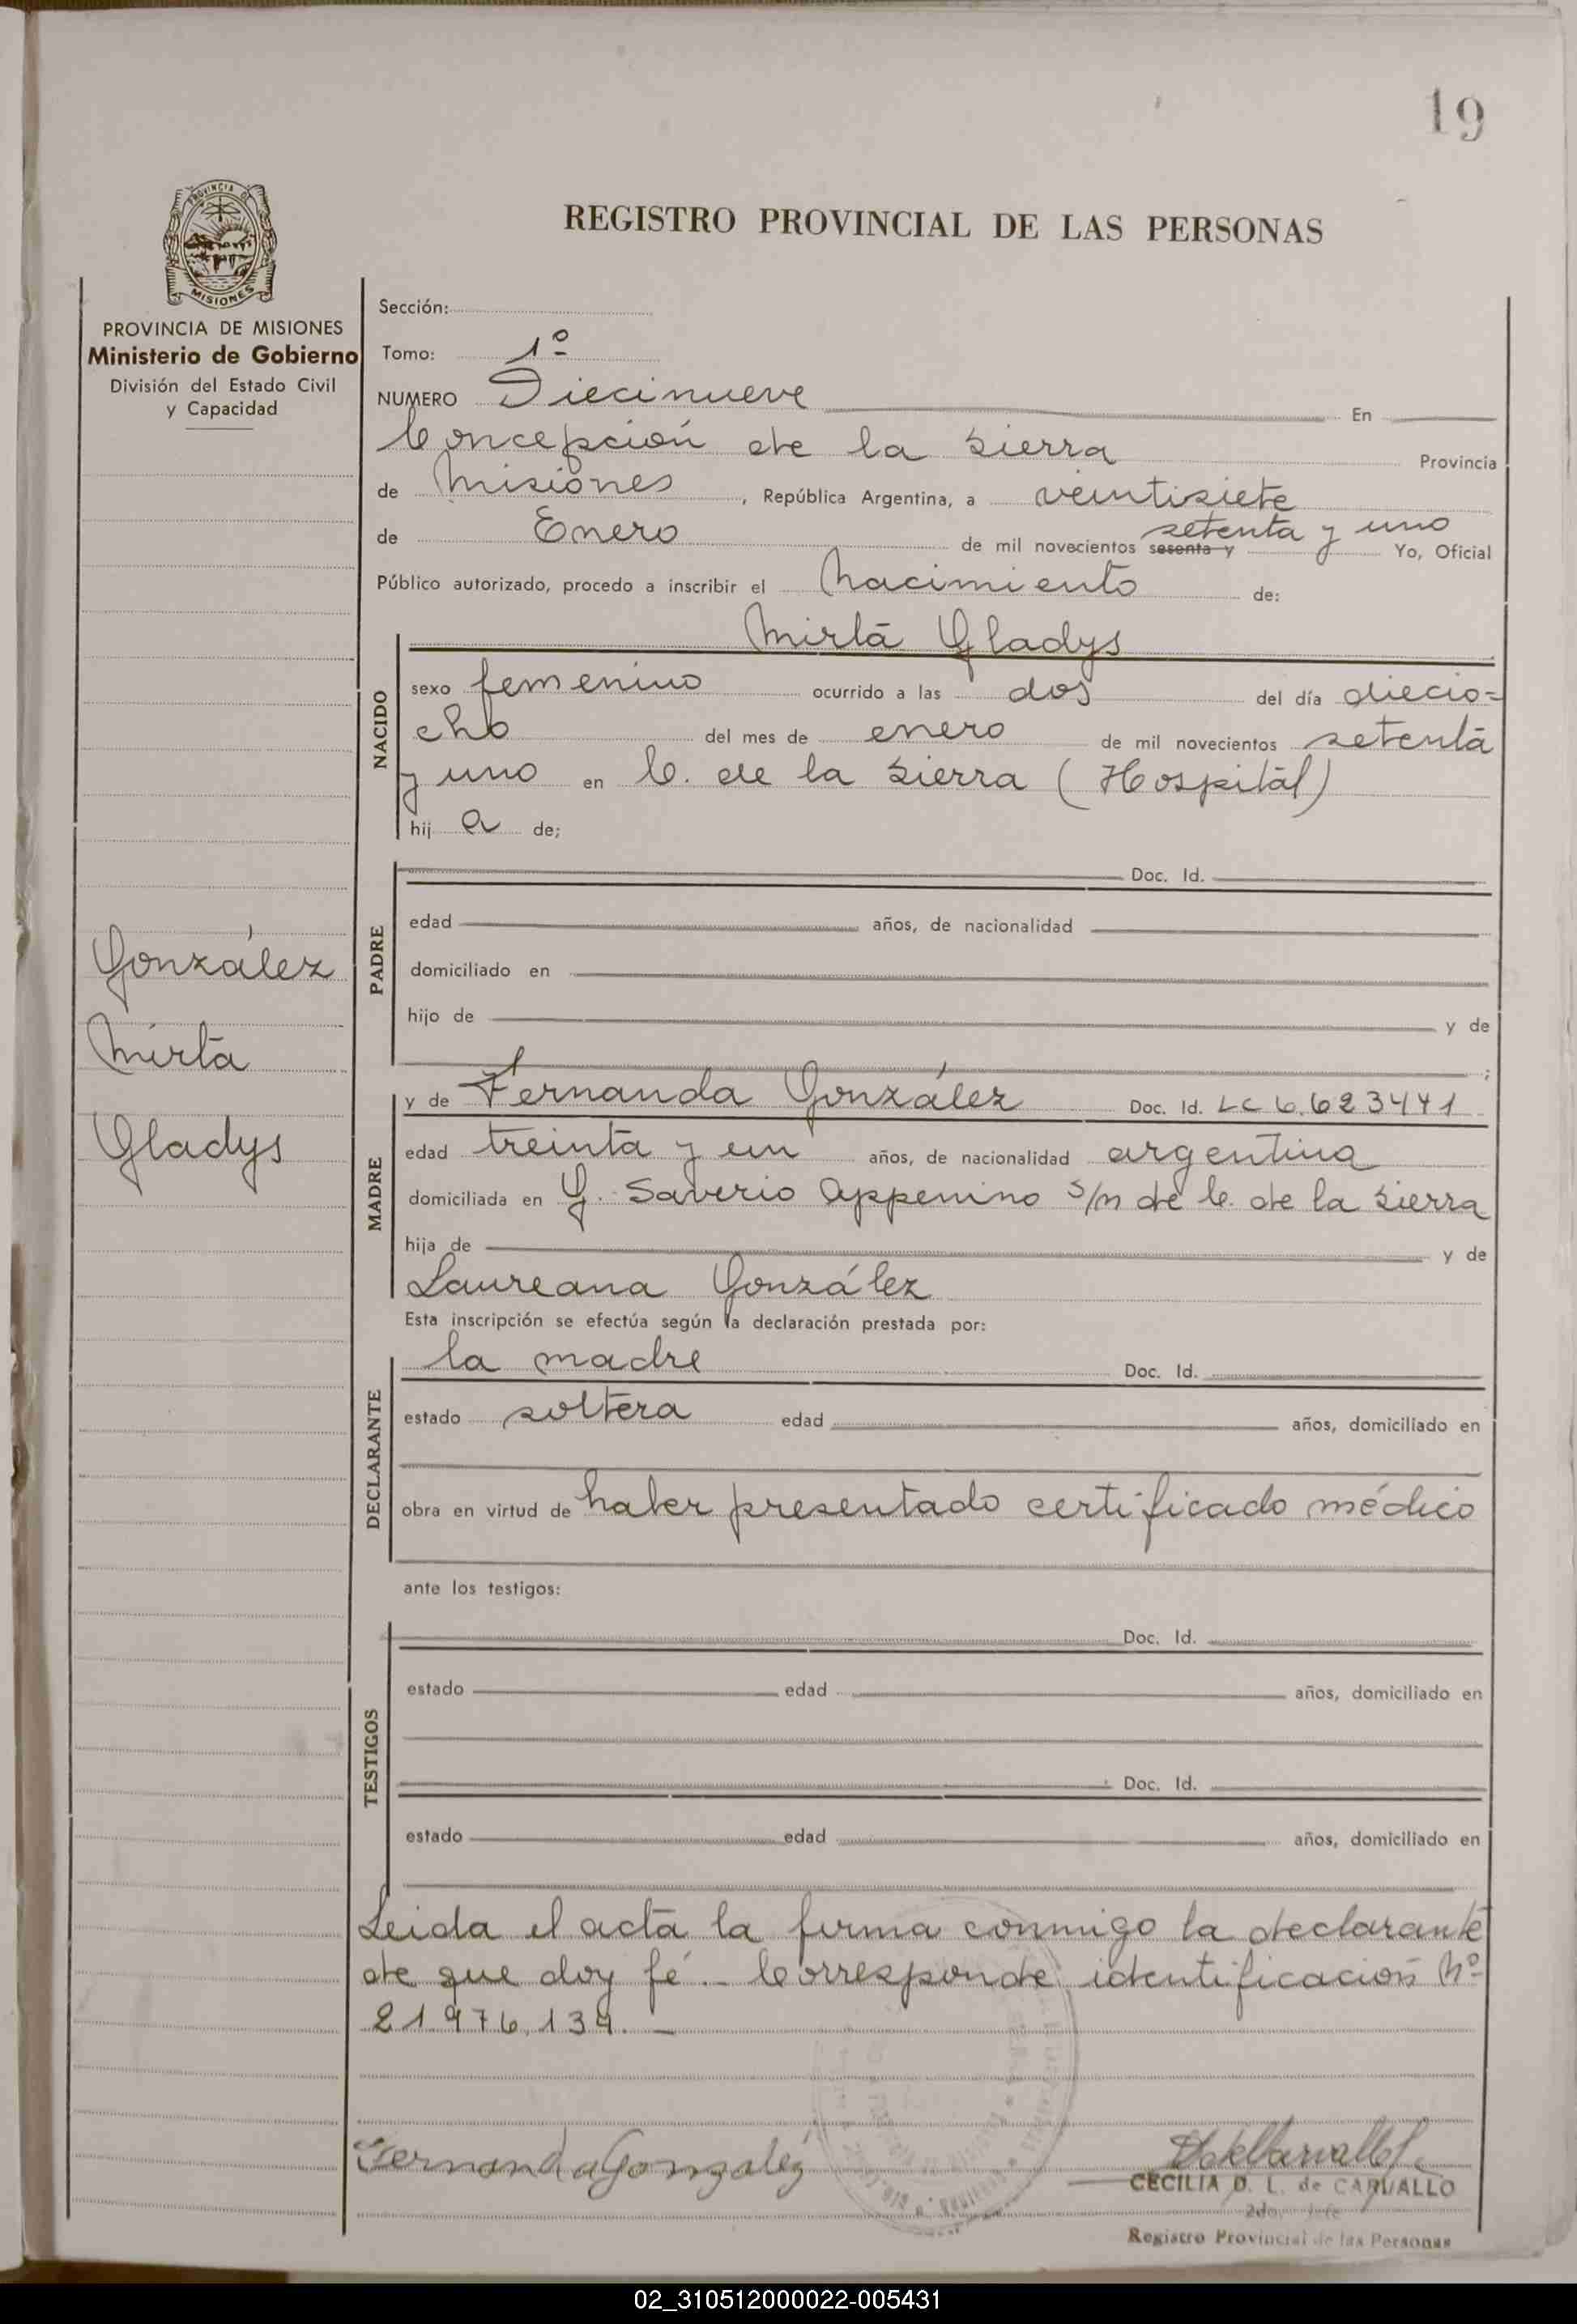 19
REGISTRO PROVINCIAL DE LAS PERSONAS
PROVINCIA DE
MISIONES
PROVINCIA DE MISIONES
Ministerio de Gobierno
División del Estado Civil
y Capacidad
González
Mirta
Gladys
Sección:
Tomo: 1º
NUMERO Diecinueve En
Concepción de la Sierra Provincia
de Misiones, República Argentina, a veintisiete
de Enero de mil novecientos sesenta y setenta y uno Yo, Oficial
Público autorizado, procedo a inscribir el Nacimiento de:
Mirta Gladys
NACIDO
sexo femenino ocurrido a las dos del día diecio=
cho del mes de enero de mil novecientos setenta
y uno en C. de la Sierra (Hospital)
hij a de;
PADRE
Doc. Id.
edad años, de nacionalidad
domiciliado en
hijo de y de
;
MADRE
y de Fernanda González Doc. Id. LC 6.623441
edad treinta y un años, de nacionalidad argentina
domiciliada en G. Saverio Appenino s/n de C. de la Sierra
hija de y de
Laureana González
Esta inscripción se efectúa según la declaración prestada por:
DECLARANTE
la madre Doc. Id.
estado soltera edad años, domiciliado en
obra en virtud de haber presentado certificado médico
ante los testigos:
TESTIGOS
Doc. Id.
estado edad años, domiciliado en
Doc. Id.
estado edad años, domiciliado en
Leida el acta la firma conmigo la declarante
de que doy fé.- Corresponde identificación Nº
21.976.139.-
Fernanda Gonzalez
CECILIA D. L. de CARVALLO
2do. Jefe
Registro Provincial de las Personas
02_310512000022-005431